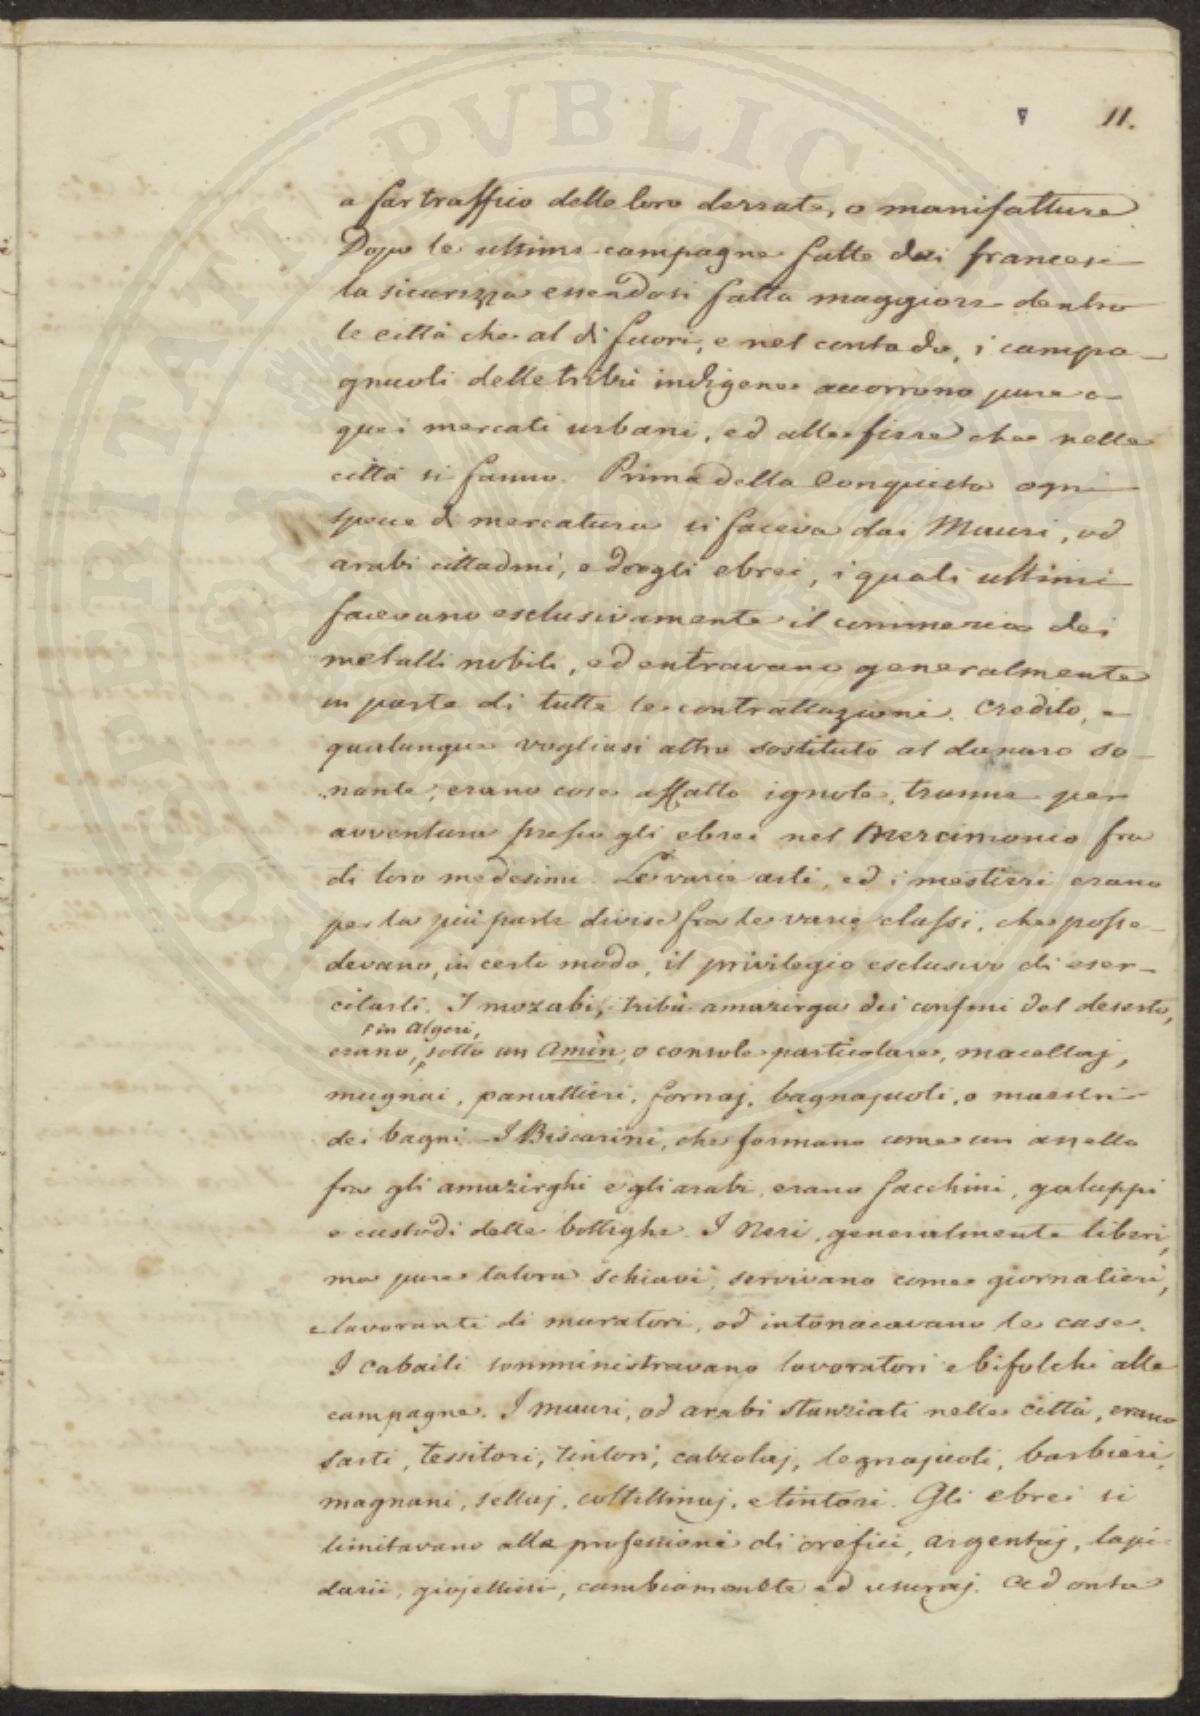 11.
a far traffico delle loro derrate, o manifatture
Dopo le ultime campagne fatte dai francesi
la sicurezza essendosi fatta maggiore dentro
le città che al di fuori, e nel contado, i campa-
gnuoli delle tribù indigene accorrono pure a
quei mercati urbani, ed alle fiere che nelle
città si fanno. Prima della Conquista ogni
specie di mercatura si faceva dai Mauri, od
arabi cittadini, e dagli ebrei, i quali ultimi
facevano esclusivamente il commercio dei
metalli nobili, ed entravano generalmente
in parte di tutte le contrattazioni. Credito, e
qualunque vogliasi altro sostituto al danaro so-
nante, erano cose affatto ignote, tranne per
avventura presso gli ebrei nel Mercimonio fra
di loro medesimi. Le varie arti, ed i mestieri erano
per la più parte divise fra le varie classi, che posse-
devano, in certo modo, il privilegio esclusivo di eser-
citarli. I mozabi, tribù amazirga dei confini del deserto,
in Algeri,
erano, sotto un Amin, o console particolare, macellaj,
mugnai, panattieri, fornaj, bagnajuoli, o maestri
dei bagni. I Biscarini, che formano come un anello
fra gli amazirghi e gli arabi, erano facchini, galuppi
e custodi delle botteghe. I Neri, generalmente liberi,
ma pure talora schiavi, servivano come giornalieri,
e lavoranti di muratori, od intonacavano le case.
I cabaili somministravano lavoratori e bifolchi alle
campagne. I mauri, od arabi stanziati nelle città, erano
sarti, tessitori, tintori, calzolaj, legnajuoli, barbieri,
magnani, sellaj, coltellinaj, e tintori. Gli ebrei si
limitavano alle professioni di orefici, argentaj, lapi-
darii, giojellieri, cambiamonete ed usuraj. Ad onta
PVBLICAE